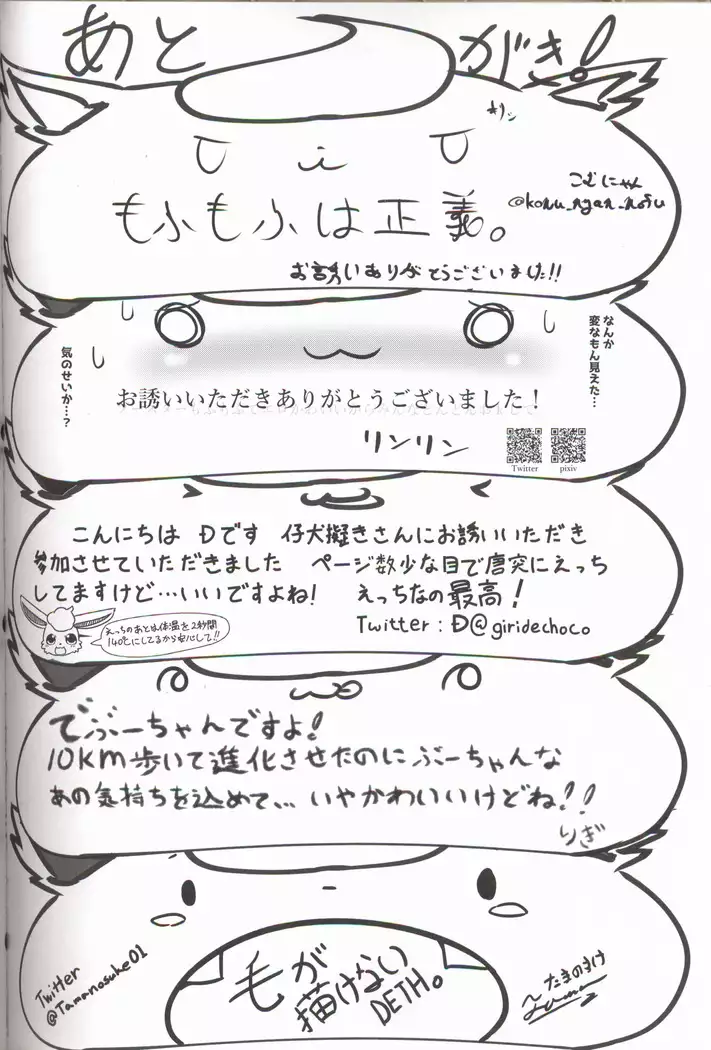 あとがき!
キリッ
もふもふは正義。
こむにゃん
お誘いありがとうございました!!
なんか
変なもん見えた…
気のせいか…?
お誘いいただきありがとうございました!
リンリン
Twitter
pixiv
こんにちは Đです 仔犬擬きさんにお誘いいただき
参加させていただきました ページ数少な目で唐突にえっち
してますけど…いいですよね! えっちなの最高!
えっちのあとは体温を2秒間
140℃にしてるから安心して!!
Twitter:Đ@giridechoco
でぶーちゃんですよ!
10km歩いて進化させたのにぶーちゃんな
あの気持ちを込めて… いやかわいいけどね!!
りぎ
毛が
描けない
DETH。
Twitter
@Tamanosuke01
たまのすけ